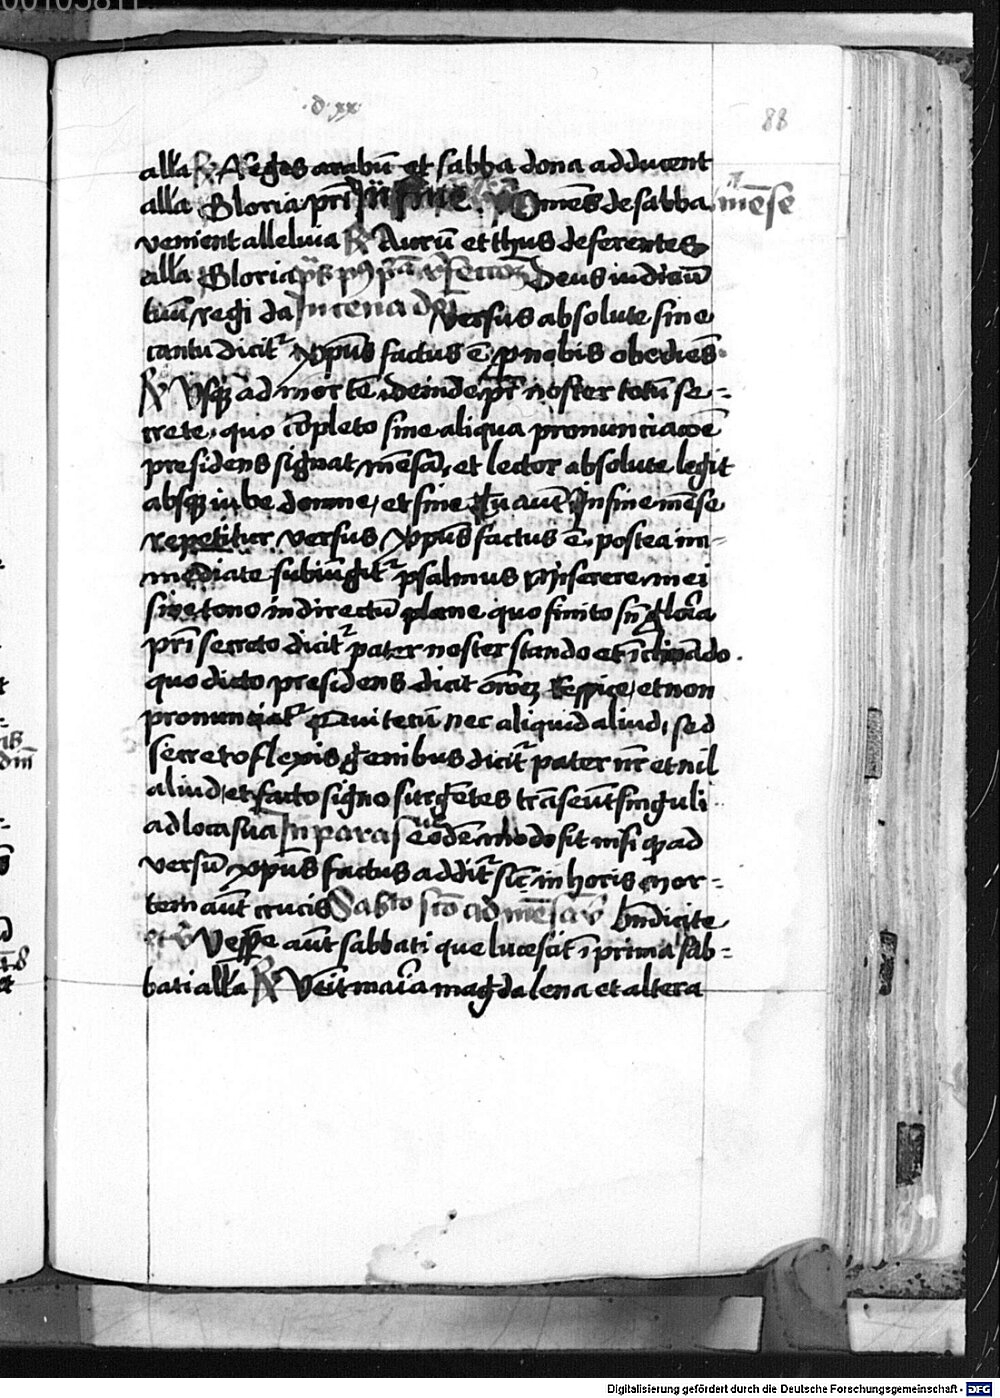 ·d·xx·
88
all'a ℟ Reges arabū et sabba dona adducent
all'a Gloria pr̄i In fine Om̄es de sabba mēse
venient alleluia ℟ Aurū et thus deferentes
all'a Gloria Deus iudiciū
tuū regi da In cena dn̄i Versus absolute sine
cantu dicit᷑ xp̄us factus ē p nobis obediēs
℟ Vsq᷒ ad mortē deinde pr̄ noster totū se-
crete, quo cōpleto sine aliqua pronunciacōe
presidens signat mēsā, et lector absolute legit
absq᷒ iube domne, et sine Tu aūt In fine mēse
repetitur versus xp̄us factus ē, postea im-
mediate subiūgit᷑ psalmus Miserere mei
sine tono in directū plane quo finito sn̄ gloria
pr̄i secreto dicit᷑ pater noster stando et īclinādo.
quo dicto presidens dicit orōez Respice, et non
pronunciat᷑ Qui tecū nec aliquid aliud, sed
secreto flexis genibus dicit᷑ pater nr̄ et nil
aliud, et facto signo surgētes trāseūt singuli
ad loca sua In paras eodē modo fit nisi q̄ ad
versū xp̄us factus addit᷑ sic̄ in horis mor-
tem aūt crucis Sabbto sc̄o ad mēsā Bn̄dicite
et Vesp̄e aūt sabbati que lucescit ī prima sab-
bati all'a ℟ Venit maria magdalena et altera
Digitalisierung gefördert durch die Deutsche Forschungsgemeinschaft - DFG